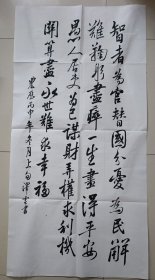 智者為官替國分憂為民解
難鞠躬盡瘁一生盡得平安
愚人居為己謀財弄權求利機
關算盡永世難求幸福
農歷丙申年冬月上旬澤書